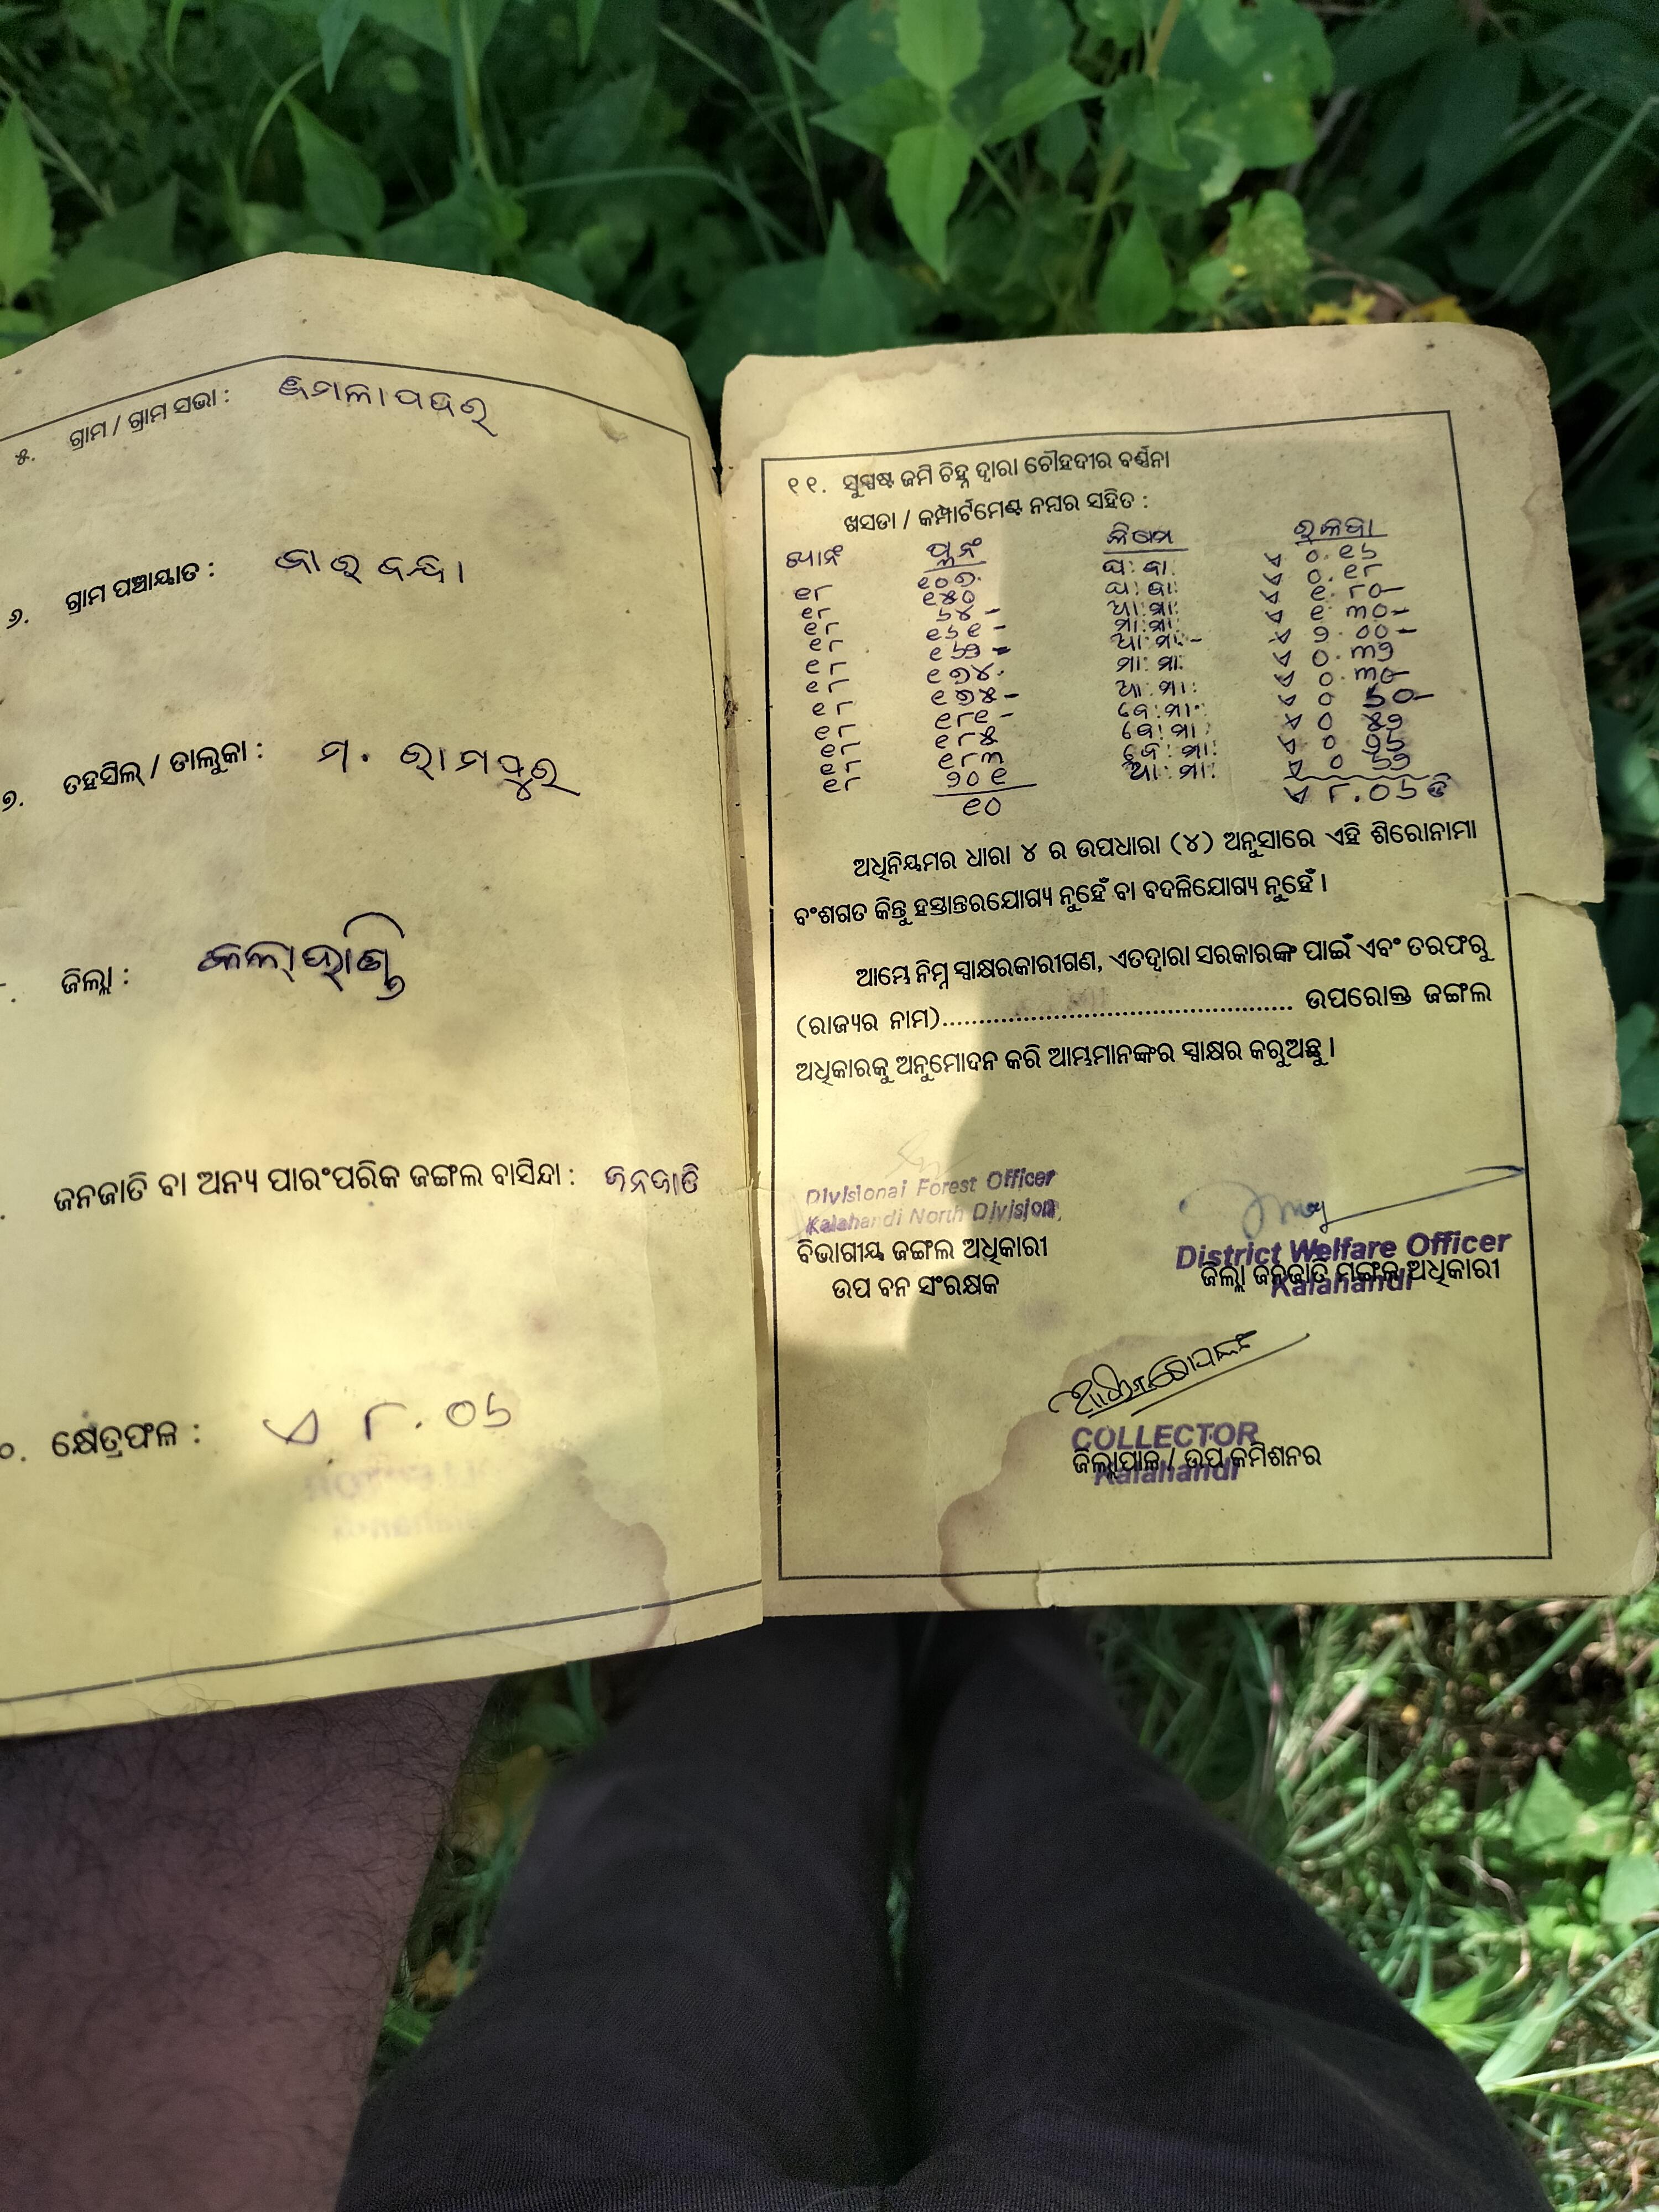 ୫. ଗ୍ରାମ / ଗ୍ରାମ ସଭା : ଜମଲାପଦର
୬. ଗ୍ରାମ ପଞ୍ଚାୟାତ : ବାରବନ୍ଧା
୭. ତହସିଲ୍ / ତାଲୁକା : ମ. ରାମପୁର
ଜିଲ୍ଲା : କଳାହାଣ୍ଡି
ଜନଜାତି ବା ଅନ୍ୟ ପାରଂପରିକ ଜଙ୍ଗଲ ବାସିନ୍ଦା : ଜନଜାତି
୦. କ୍ଷେତ୍ରଫଳ : ଏ ୮.୦୬
୧୧. ସୁସ୍ପଷ୍ଟ ଜମି ଚିହ୍ନ ଦ୍ୱାରା ଚୌହଦୀର ବର୍ଣ୍ଣନା
ଖସଡା / କମ୍ପାର୍ଟମେଣ୍ଟ ନମ୍ବର ସହିତ :
ଖାନଂ ପ୍ଲନଂ କିସମ ରକବା
୧୮ ୧୦୭ ଏ ୦.୧୬
୧୮ ୧୫୦ ଏ ୦.୧୮
୧୮ ୬୪ - ଏ ୧.୮୦-
୧୮ ୧୬୧ - ଏ ୧.୩୦-
୧୮ ୧୬୨ - ଏ ୨.୦୦-
୧୮ ୧୭୪. ଏ ୦.୩୨
୧୮ ୧୭୫ - ଏ ୦.୩୦
୧୮ ୧୮୧ - ଏ ୦ ୬୦-
୧୮ ୧୮୫ ଏ ୦ ୫୨
୧୮ ୧୮୩ ଏ ୦ ୨୬
୧୮ ୨୦୧ ଏ ୦ ୬୨
୧୦ ଏ ୮.୦୬ ଡି
ଅଧିନିୟମର ଧାରା ୪ ର ଉପଧାରା (୪) ଅନୁସାରେ ଏହି ଶିରୋନାମା
ବଂଶଗତ କିନ୍ତୁ ହସ୍ତାନ୍ତରଯୋଗ୍ୟ ନୁହେଁ ବା ବଦଳିଯୋଗ୍ୟ ନୁହେଁ ।
ଆମ୍ଭେ ନିମ୍ନ ସ୍ୱାକ୍ଷରକାରୀଗଣ, ଏତଦ୍ୱାରା ସରକାରଙ୍କ ପାଇଁ ଏବଂ ତରଫରୁ
(ରାଜ୍ୟର ନାମ)................................................ ଉପରୋକ୍ତ ଜଙ୍ଗଲ
ଅଧିକାରକୁ ଅନୁମୋଦନ କରି ଆମ୍ଭମାନଙ୍କର ସ୍ୱାକ୍ଷର କରୁଅଛୁ ।
Divisional Forest Officer
Kalahandi North Division,
ବିଭାଗୀୟ ଜଙ୍ଗଲ ଅଧିକାରୀ
ଉପ ବନ ସଂରକ୍ଷକ
District Welfare Officer
ଜିଲ୍ଲା ଜନଜାତି ମଙ୍ଗଳ ଅଧିକାରୀ
Kalahandi
COLLECTOR
ଜିଲ୍ଲାପାଳ / ଉପ କମିଶନର
Kalahandi